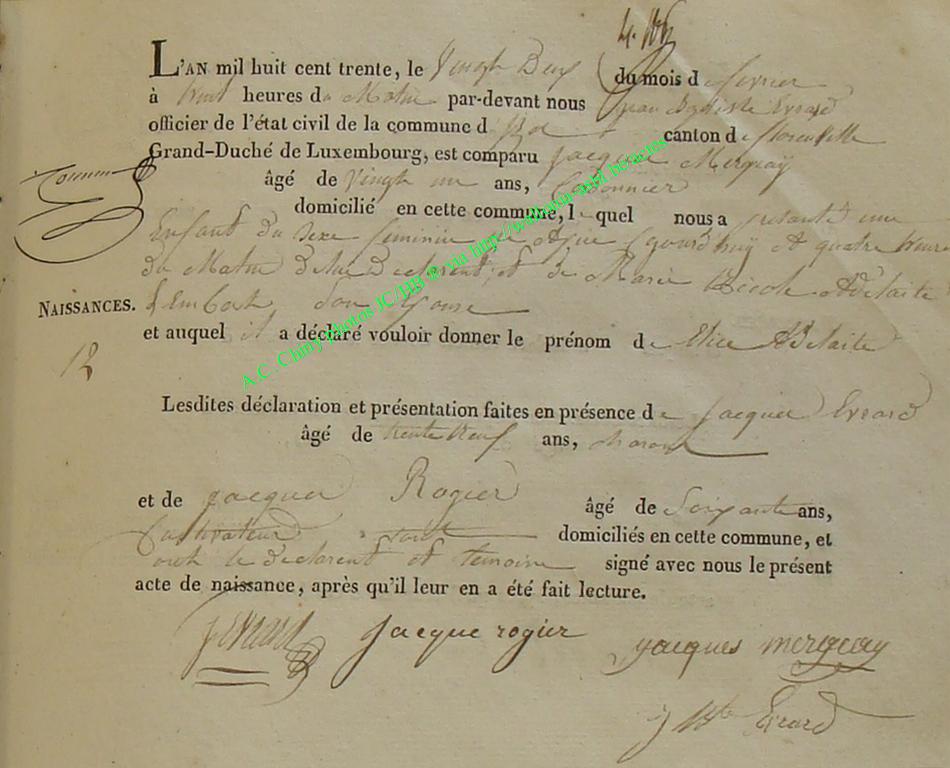 L'AN mil huit cent trente, le Vingt Deux du mois de fevrier
à huit heures du Matin par-devant nous Jean Bptiste Evrard
officier de l'état civil de la commune d canton de florenville
Grand-Duché de Luxembourg, est comparu Jacque Merguay
âgé de Vingt un ans, Cordonnier
domicilié en cette commune, lequel nous a presanté une
Enfant du sexe feminin née aujourd'huy à quatre heure
du Matin de lui Declarent, et de Marie Nicole Adelaite
Lembert son Epouse
NAISSANCES.
et auquel il a déclaré vouloir donner le prénom de Elice Adelaite
12
Lesdites déclaration et présentation faites en présence de Jacques Evrard
âgé de trente neuf ans,
et de Jacques Rogier âgé de Soixante ans,
Cultivateur domiciliés en cette commune, et
ont le declarent et temoins signé avec nous le présent
acte de naissance, après qu'il leur en a été fait lecture.
J Evrard Jacque rogier Jacques merguay
J Bte Evrard
A.C. Chiny photos JC/HB © via